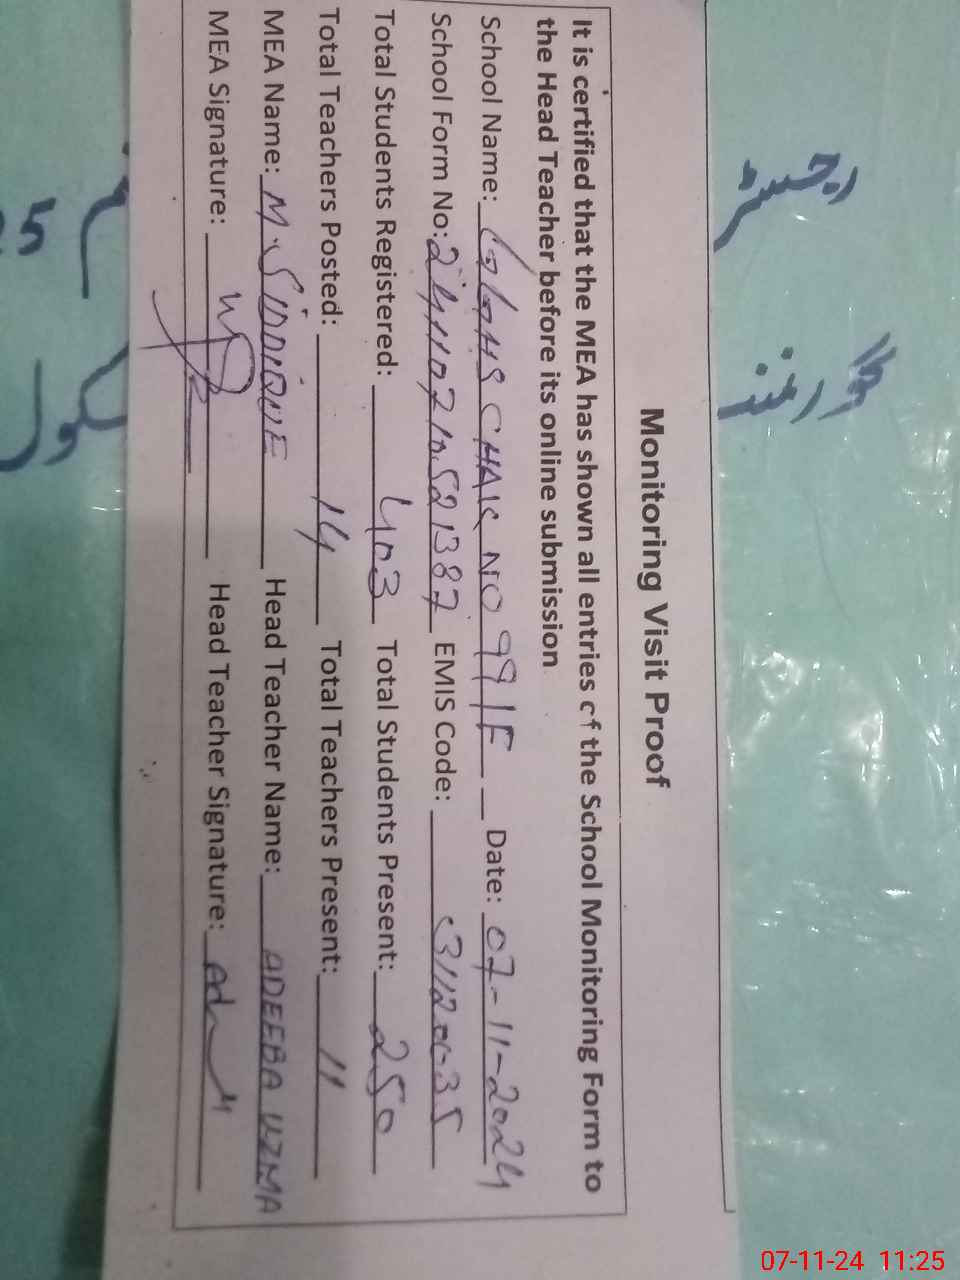 Monitoring Visit Proof
It is certified that the MEA has shown all entries of the School Monitoring Form to
the Head Teacher before its online submission
School Name: GGHS CHAK NO 99/F Date: 07-11-2024
School Form No: 24110710521387 EMIS Code: 31120035
Total Students Registered: 403 Total Students Present: 250
Total Teachers Posted: 14 Total Teachers Present: 11
MEA Name: M. SIDDIQUE Head Teacher Name: ADEEBA UZMA
MEA Signature: Head Teacher Signature:
07-11-24 11:25